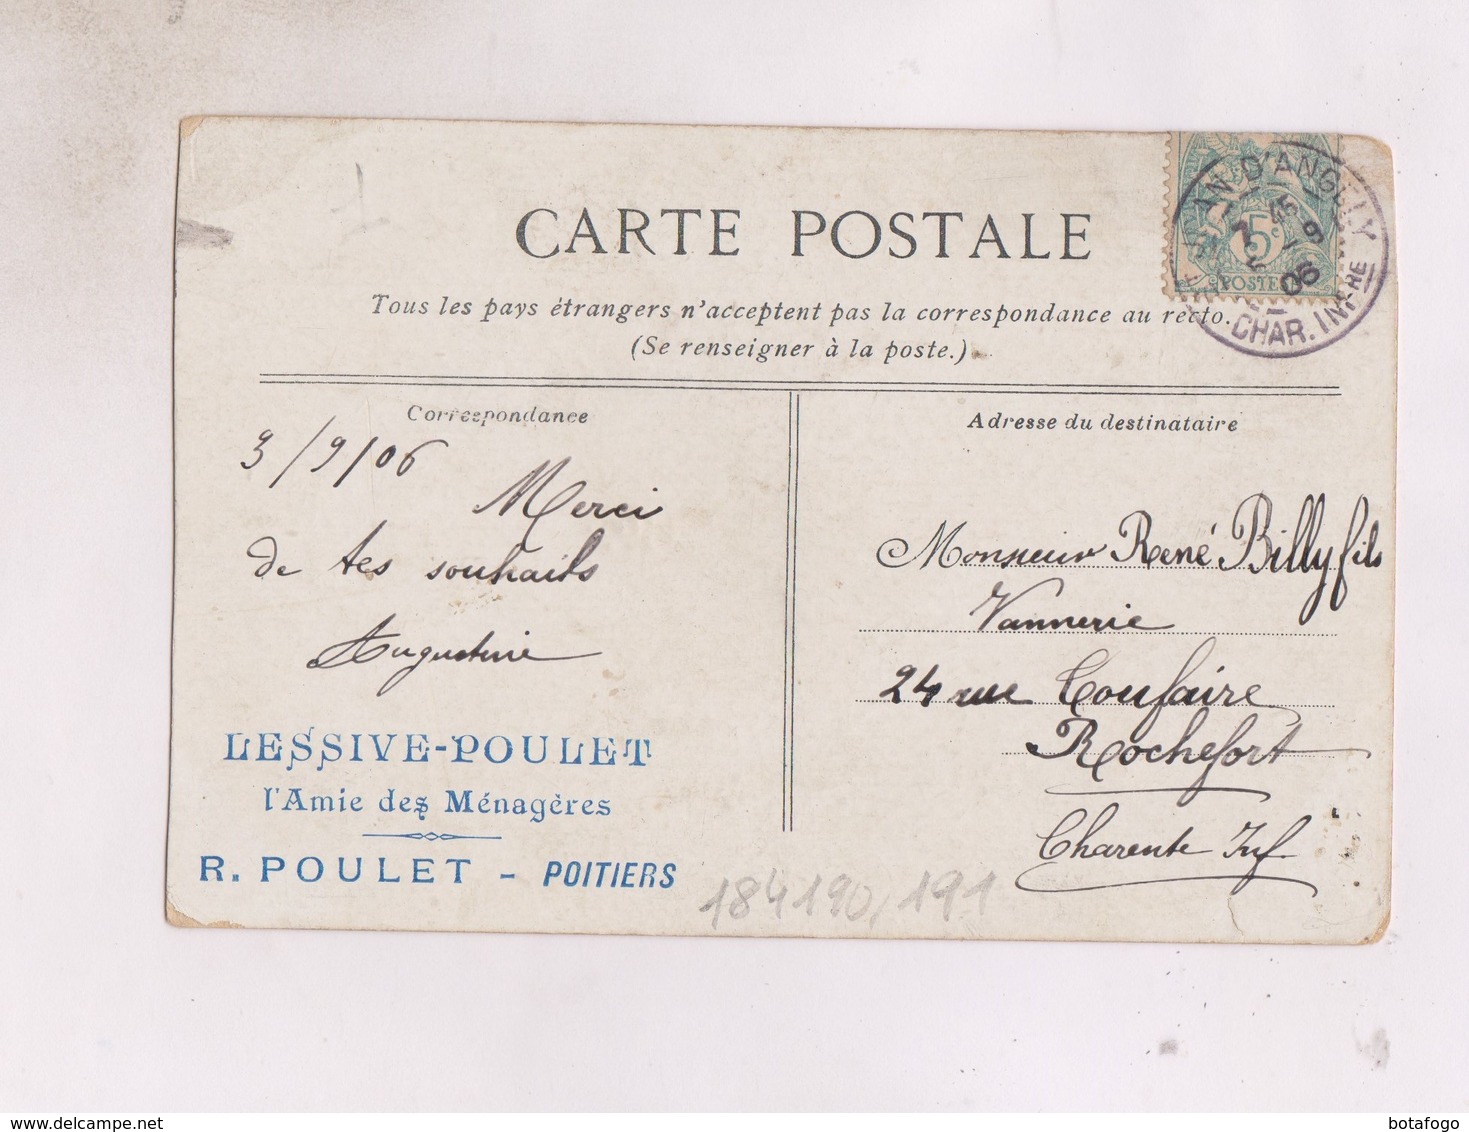 CARTE POSTALE
Tous les pays étrangers n'acceptent pas la correspondance au recto.
(Se renseigner à la poste.)
JEAN D'ANGELY
7 45
5 9
06
CHAR. INFRE
5c
POSTES
Correspondance
3/9/06
Merci
de tes souhaits
Augustine
LESSIVE-POULET
l'Amie des Ménagères
R. POULET - POITIERS
Adresse du destinataire
Monsieur René Billy fils
Vannerie
24 rue Toufaire
Rochefort
Charente Inf.
184190/191
www.delcampe.net
botafogo